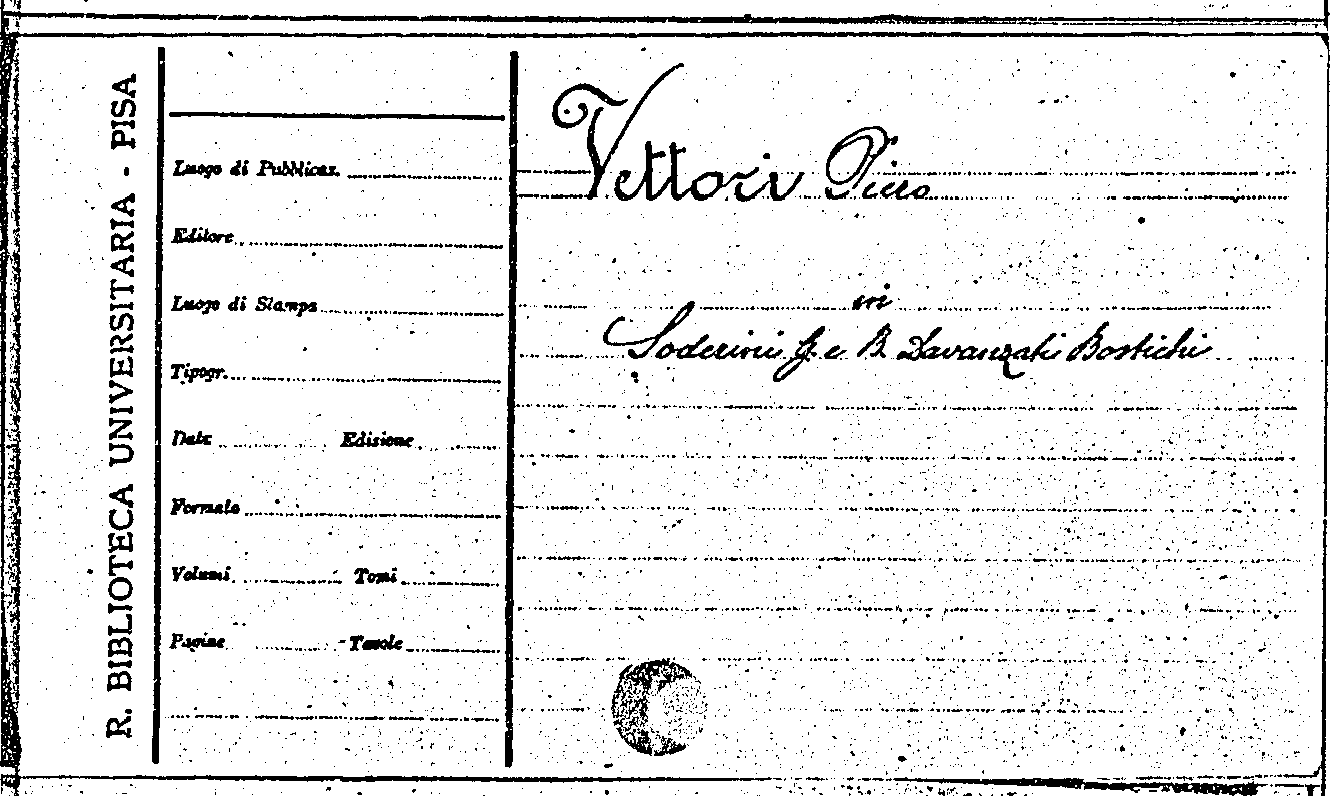 R. BIBLIOTECA UNIVERSITARIA - PISA
Luogo di Pubblicaz.
Editore
Luogo di Stampa
Tipogr.
Data Edizione
Formato
Volumi Tomi
Pagine Tavole
Vettori Piero
in
Soderini G. e B. Davanzati Bostichi